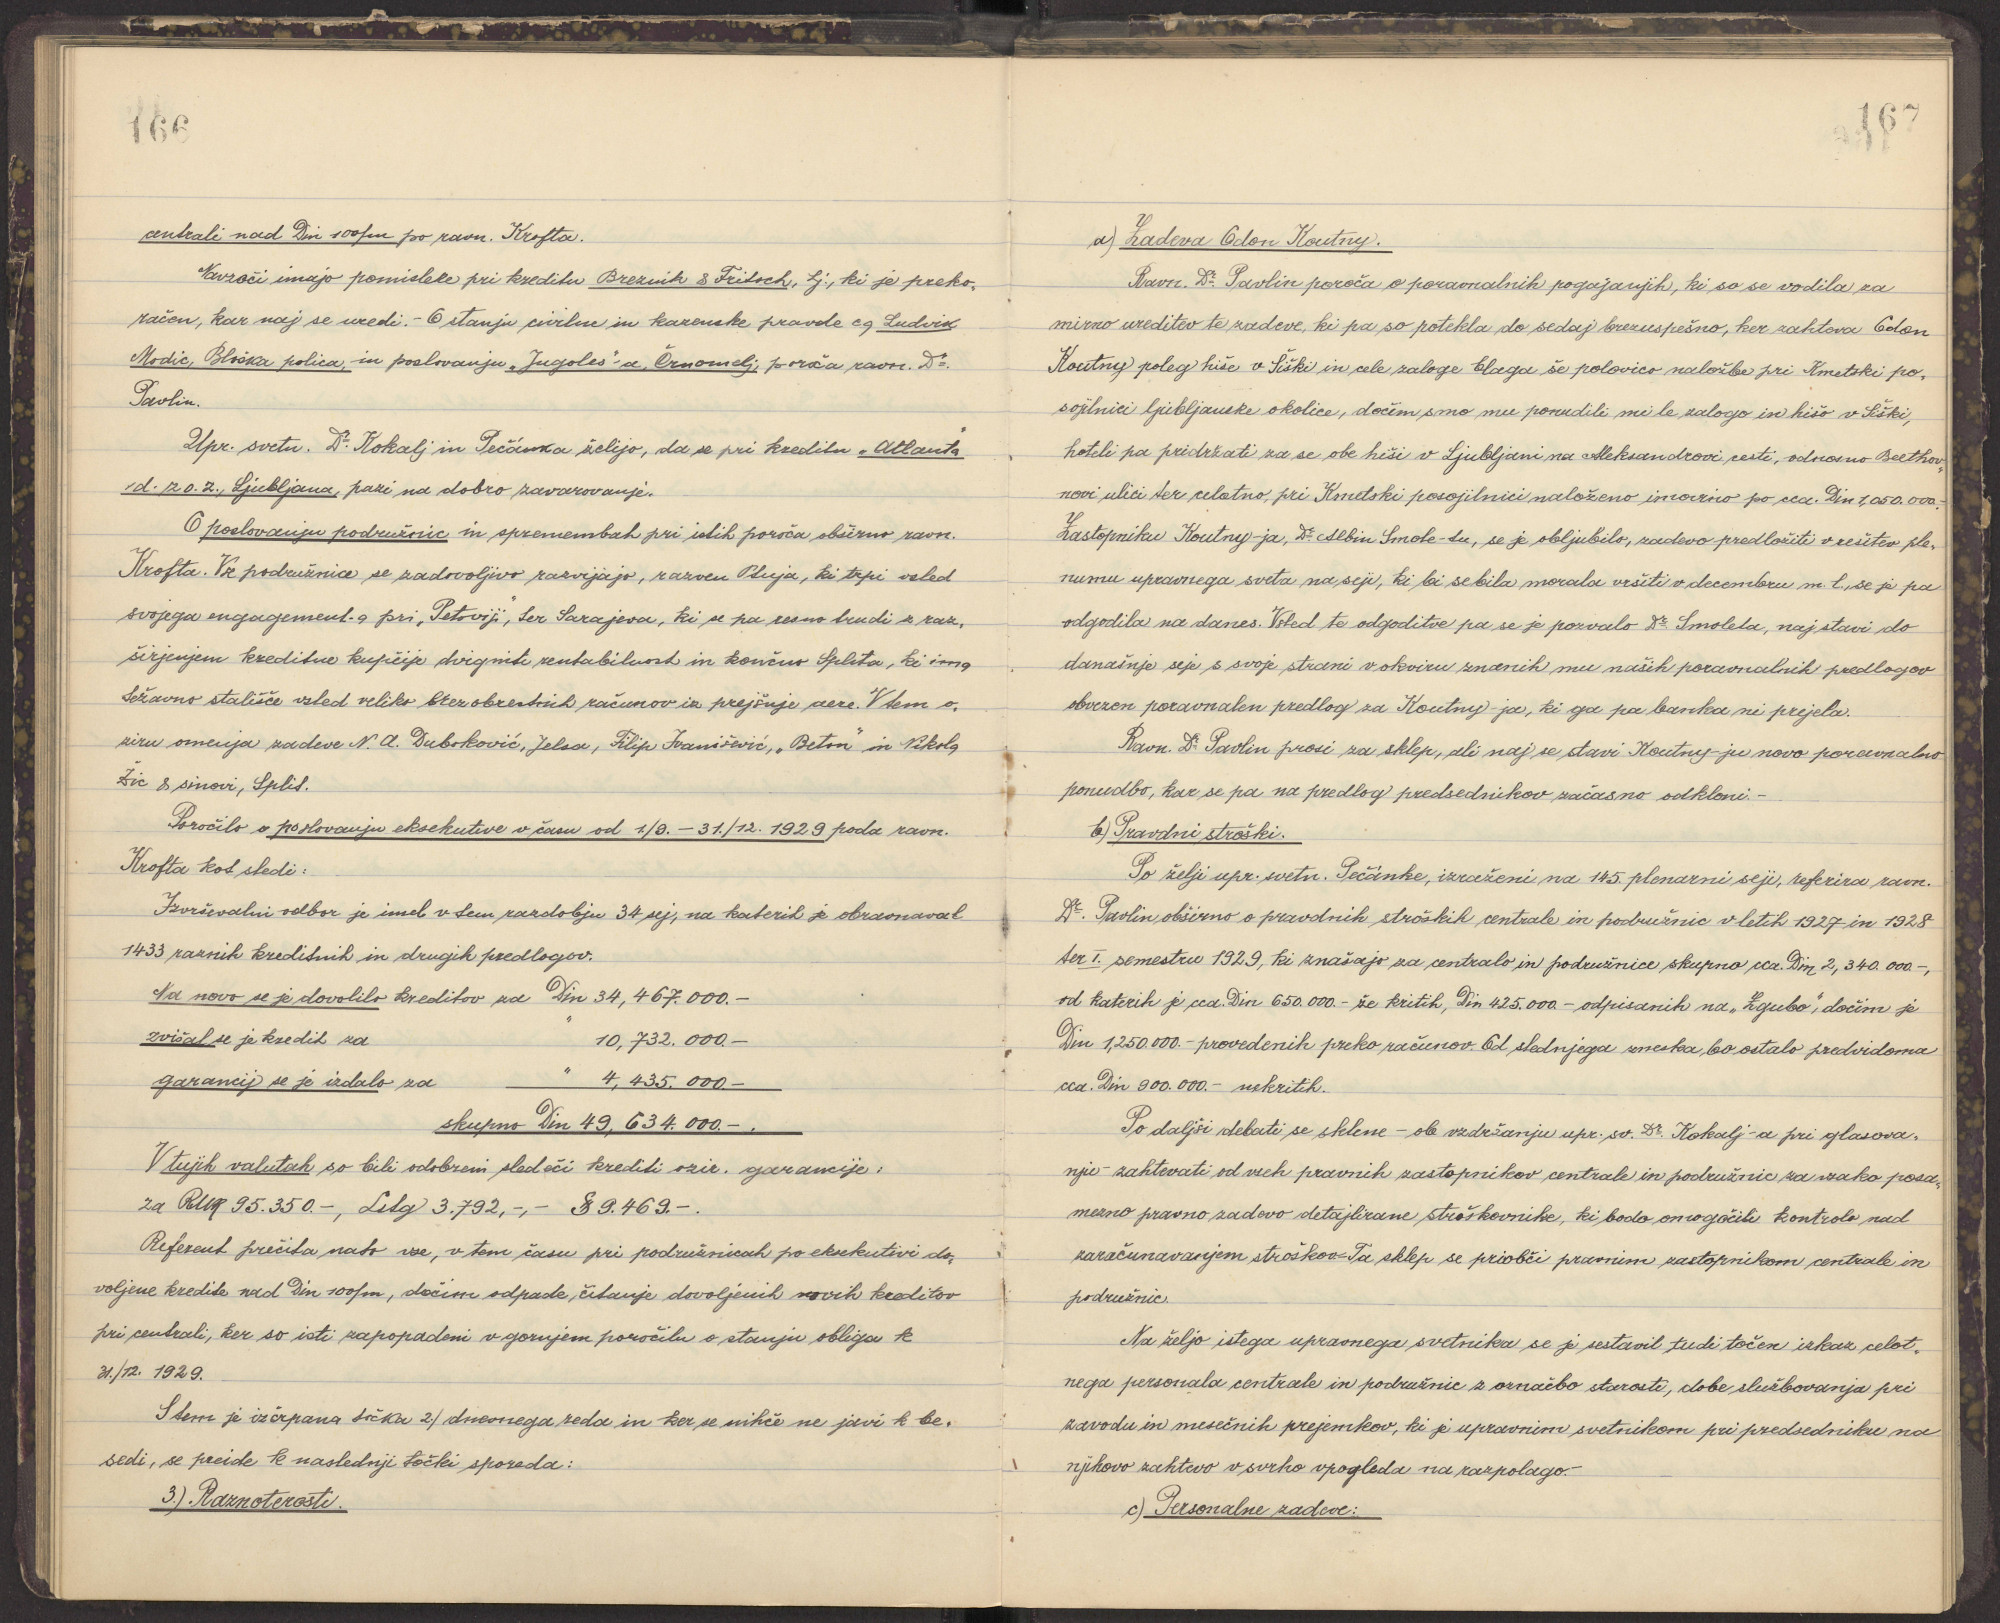 166
centrali nad Din 100/m po ravn. Krofta.
Navzoči imajo pomisleke pri kreditu Breznik & Fritsch, Lj., ki je preko-
račen, kar naj se uredi. - O stanju civilne in kazenske pravde ca Ludvik
Modic, Bloška polica, in poslovanju "Jugoles"-a, Črnomelj, poroča ravn. Dr.
Pavlin.
Upr. svetn. Dr. Kokalj in Pečánka želijo, da se pri kreditu "Atlanta"
d. z o. z., Ljubljana, pazi na dobro zavarovanje.
O poslovanju podružnic in spremembah pri istih poroča obširno ravn.
Krofta. Vse podružnice se zadovoljivo razvijajo, razven Ptuja, ki trpi vsled
svojega engagement-a pri "Petoviji", ter Sarajeva, ki se pa resno trudi z raz-
širjenjem kreditne kupčije dvigniti rentabilnost in končno Splita, ki ima
težavno stališče vsled veliko brezobrestnih računov iz prejšnje aere. V tem o-
ziru omenja zadeve N. A. Duboković, Jelsa, Filip Ivanišević, "Beton" in Nikola
Žic & sinovi, Split.
Poročilo o poslovanju eksekutive v času od 1/9. - 31./12. 1929 poda ravn.
Krofta kot sledi:
Izvrševalni odbor je imel v tem razdobju 34 sej, na katerih je obravnaval
1433 raznih kreditnih in drugih predlogov.
Na novo se je dovolilo kreditov za Din 34,467.000.-
zvišal se je kredit za " 10,732.000.-
garancij se je izdalo za " 4,435.000.-
skupno Din 49,634.000.-.
V tujih valutah so bili odobreni sledeči krediti ozir. garancije:
za RM 95.350.-, Lstg 3.792,-,- $ 9.469.-.
Referent prečita nato vse, v tem času pri podružnicah po eksekutivi do-
voljene kredite nad Din 100/m, dočim odpade čitanje dovoljenih novih kreditov
pri centrali, ker so isti zapopadeni v gornjem poročilu o stanju obliga k
31./12. 1929.
S tem je izčrpana točka 2/ dnevnega reda in ker se nihče ne javi k be-
sedi, se preide k naslednji točki sporeda:
3.) Raznoterosti.
167
a) Zadeva Edon Koutny.
Ravn. Dr. Pavlin poroča o poravnalnih pogajanjih, ki so se vodila za
mirno ureditev te zadeve, ki pa so potekla do sedaj brezuspešno, ker zahteva Edon
Koutny poleg hiše v Šiški in cele zaloge blaga še polovico naložbe pri Kmetski po-
sojilnici ljubljanske okolice, dočim smo mu ponudili mi le zalogo in hišo v Šiški,
hoteli pa pridržati za se obe hiši v Ljubljani na Aleksandrovi cesti, odnosno Beethov-
novi ulici ter celotno, pri Kmetski posojilnici naloženo imovino po cca. Din 1,050.000.-
Zastopniku Koutny-ja, Dr. Albin Smole-tu, se je obljubilo, zadevo predložiti v rešitev ple-
numu upravnega sveta na seji, ki bi se bila morala vršiti v decembru m. l., se je pa
odgodila na danes. Vsled te odgoditve pa se je pozvalo Dr. Smoleta, naj stavi do
današnje seje s svoje strani v okviru znanih mu naših poravnalnih predlogov
obvezen poravnalen predlog za Koutny-ja, ki ga pa banka ni prejela.
Ravn. Dr. Pavlin prosi za sklep, ali naj se stavi Koutny-ju novo poravnalno
ponudbo, kar se pa na predlog predsednikov začasno odkloni.-
b) Pravdni stroški.
Po želji upr. svetn. Pečánke, izraženi na 145. plenarni seji, referira ravn.
Dr. Pavlin obširno o pravdnih stroških centrale in podružnic v letih 1927 in 1928
ter I. semestru 1929, ki znašajo za centralo in podružnice skupno cca. Din 2,340.000.-,
od katerih je cca. Din 650.000.- že kritih, Din 425.000.- odpisanih na "Zgubo", dočim je
Din 1,250.000.- provedenih preko računov. Od slednjega zneska bo ostalo predvidoma
cca. Din 900.000.- nekritih.
Po daljši debati se sklene - ob vzdržanju upr. sv. Dr. Kokalj-a pri glasova-
nju - zahtevati od vseh pravnih zastopnikov centrale in podružnic za vsako posa-
mezno pravno zadevo detajlirane stroškovnike, ki bodo omogočili kontrolo nad
zaračunavanjem stroškov. Ta sklep se priobči pravnim zastopnikom centrale in
podružnic.
Na željo istega upravnega svetnika se je sestavil tudi točen izkaz celot-
nega personala centrale in podružnic z označbo starosti, dobe službovanja pri
zavodu in mesečnih prejemkov, ki je upravnim svetnikom pri predsedniku na
njihovo zahtevo v svrho vpogleda na razpolago.-
c) Personalne zadeve: